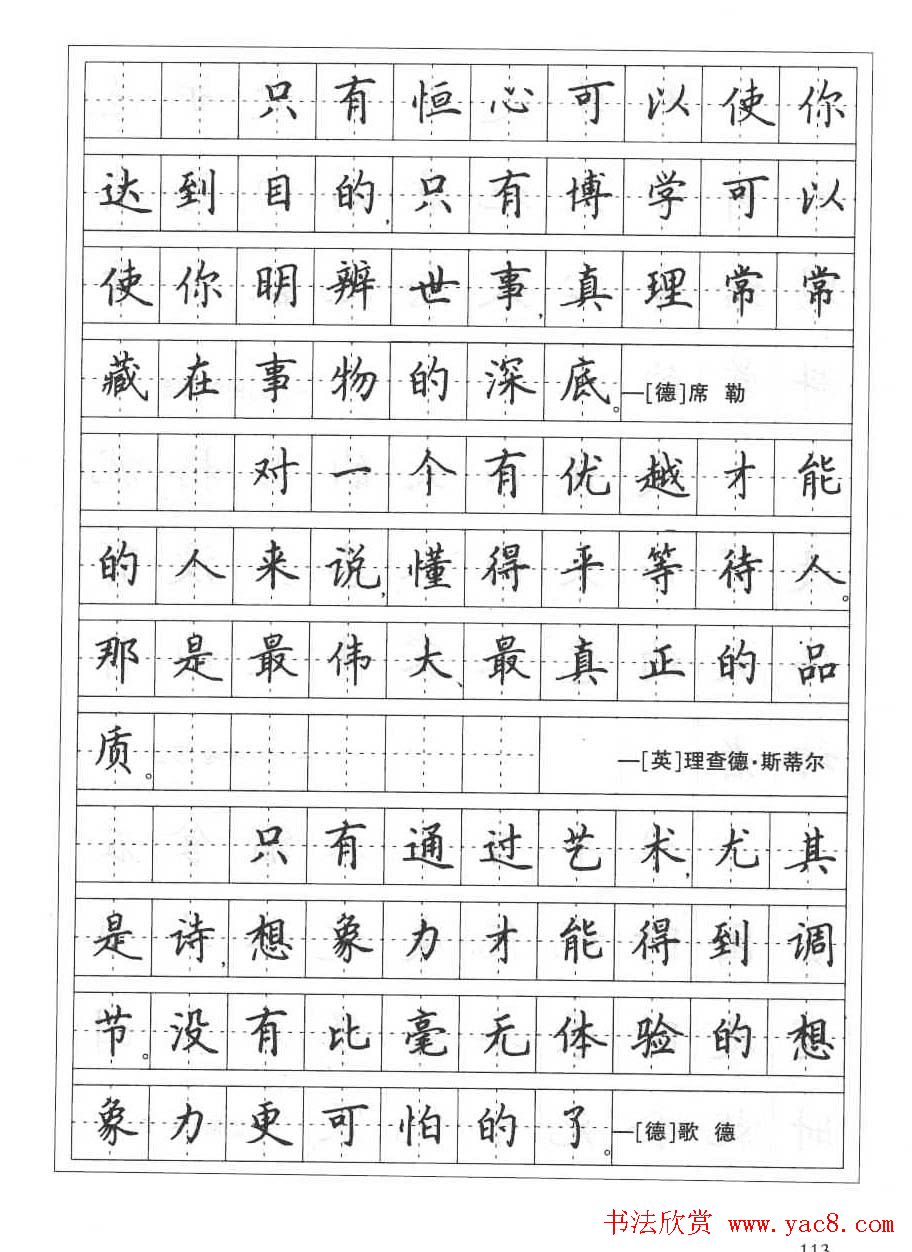 只有恒心可以使你
达到目的,只有博学可以
使你明辨世事,真理常常
藏在事物的深底。—[德]席 勒
对一个有优越才能
的人来说,懂得平等待人。
那是最伟大、最真正的品
质。 —[英]理查德·斯蒂尔
只有通过艺术,尤其
是诗,想象力才能得到调
节。没有比毫无体验的想
象力更可怕的了。—[德]歌 德
书法欣赏 www.yac8.com
113